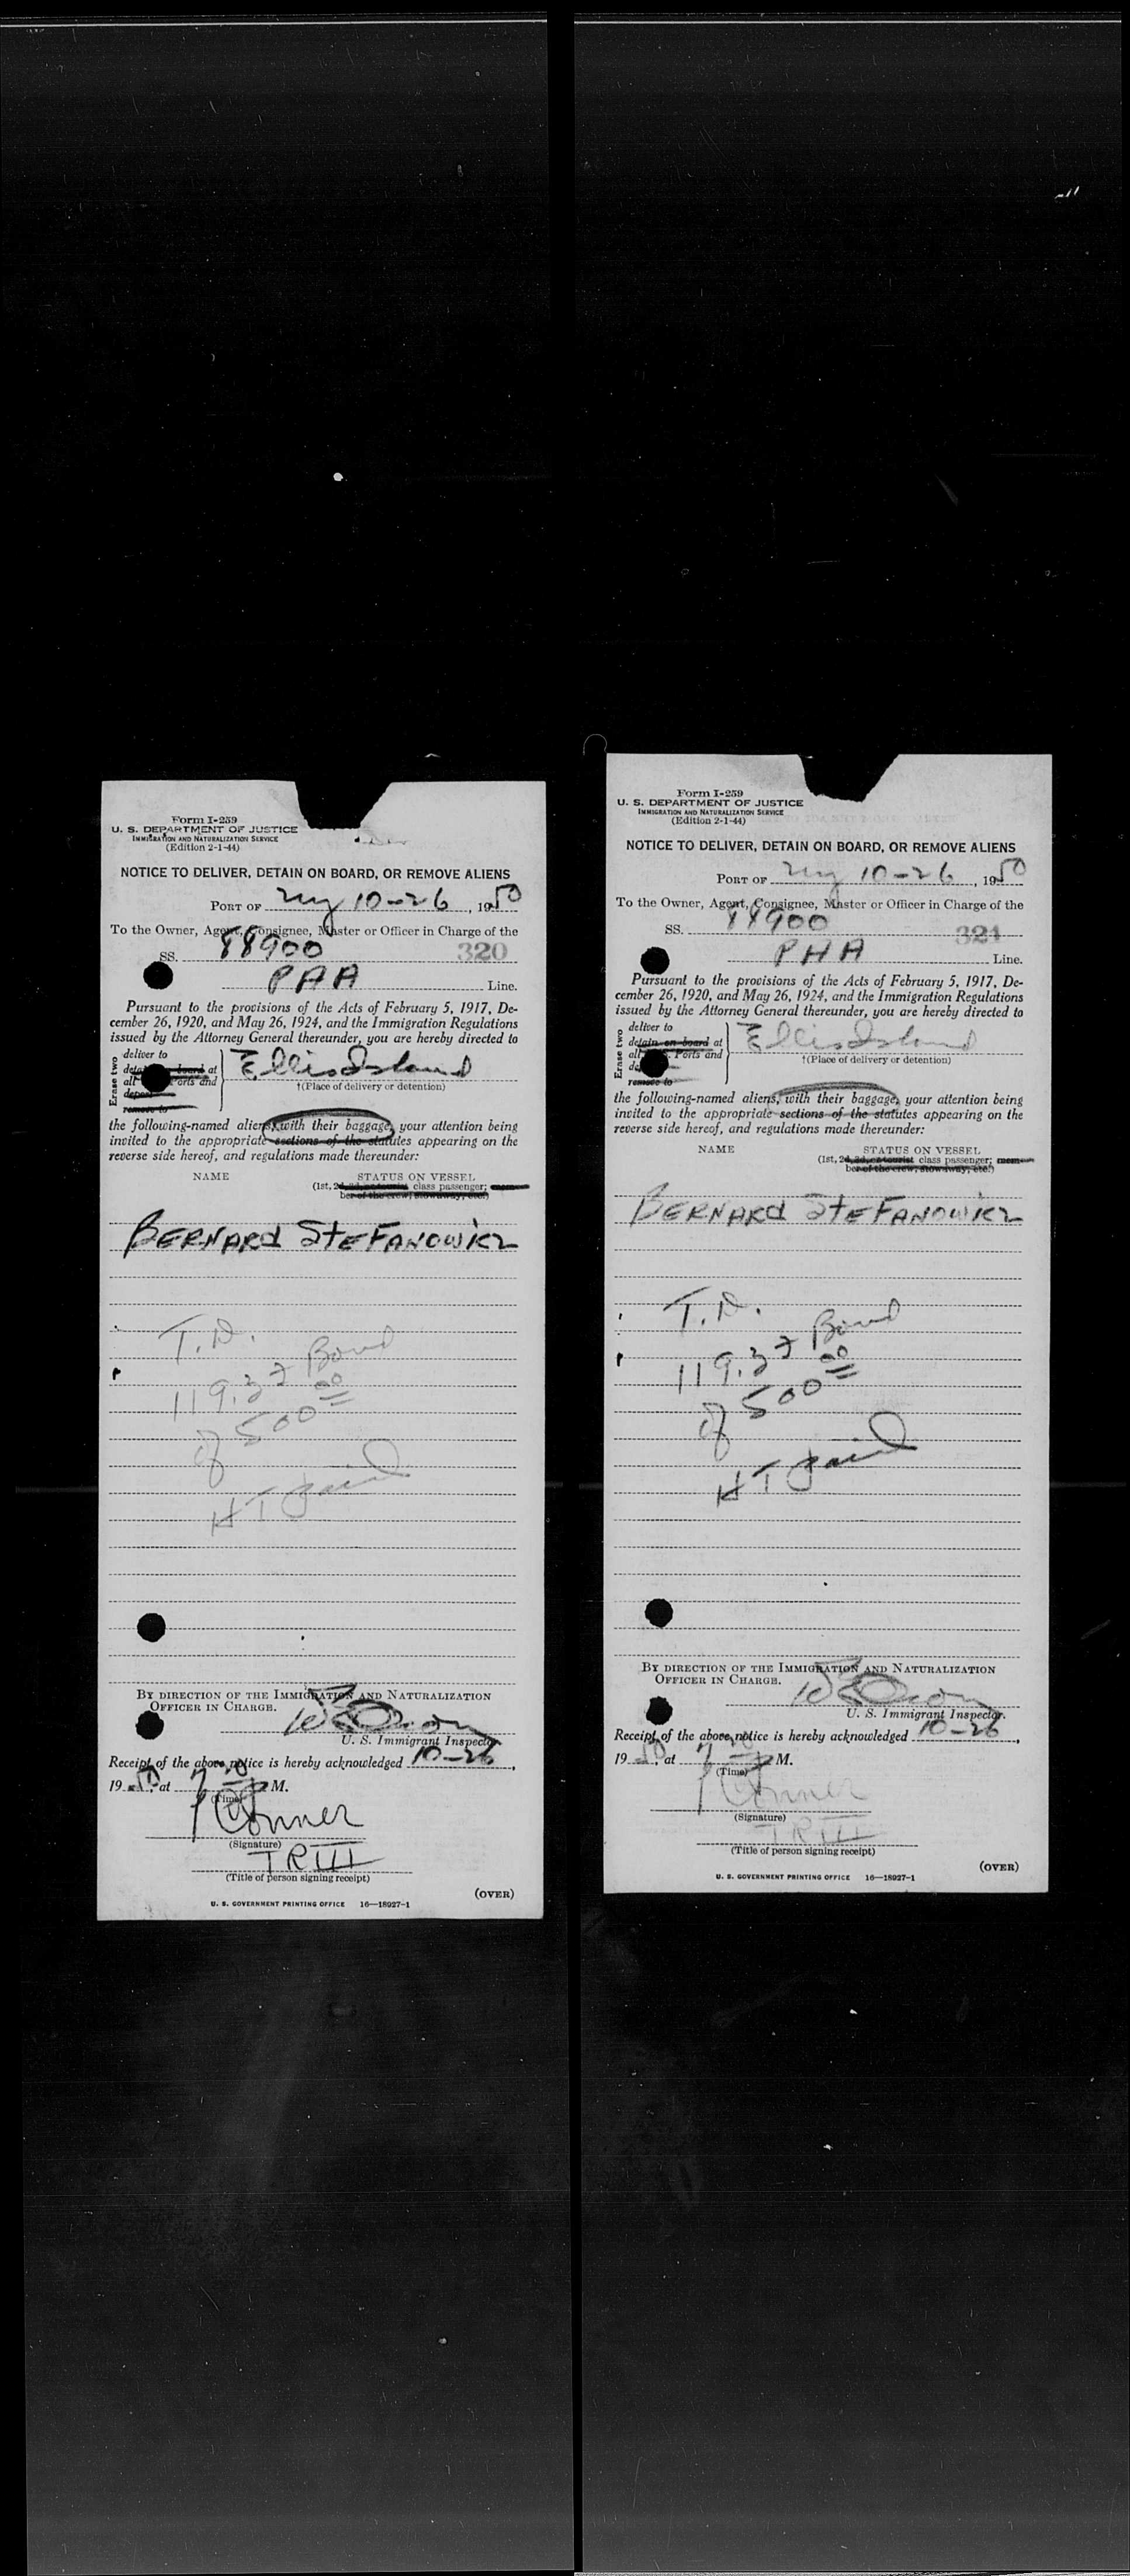 Form I-259
U. S. DEPARTMENT OF JUSTICE
IMMIGRATION AND NATURALIZATION SERVICE
(Edition 2-1-44)
NOTICE TO DELIVER, DETAIN ON BOARD, OR REMOVE ALIENS
PORT OF NY 10-26, 1950
To the Owner, Agent, Consignee, Master or Officer in Charge of the
SS. 88900 320
PAA Line.
Pursuant to the provisions of the Acts of February 5, 1917, De-
cember 26, 1920, and May 26, 1924, and the Immigration Regulations
issued by the Attorney General thereunder, you are hereby directed to
Erase two
deliver to
detain on board at
all Ports and
depor
remove to
Ellis Island
†(Place of delivery or detention)
the following-named aliens, with their baggage, your attention being
invited to the appropriate sections of the statutes appearing on the
reverse side hereof, and regulations made thereunder:
NAME STATUS ON VESSEL
(1st, 2d, 3d, or tourist class passenger; mem-
ber of the crew, stowaway, etc.)
BERNARd SteFANOWicz
T.D.
119.37 Bond
of 500 00
HT Paid
BY DIRECTION OF THE IMMIGRATION AND NATURALIZATION
OFFICER IN CHARGE.
U. S. Immigrant Inspector.
Receipt of the above notice is hereby acknowledged 10-26,
1950, at 7 P M.
(Time)
Conner
(Signature)
TR III
(Title of person signing receipt)
(OVER)
U. S. GOVERNMENT PRINTING OFFICE 16—18927-1
Form I-259
U. S. DEPARTMENT OF JUSTICE
IMMIGRATION AND NATURALIZATION SERVICE
(Edition 2-1-44)
NOTICE TO DELIVER, DETAIN ON BOARD, OR REMOVE ALIENS
PORT OF NY 10-26, 1950
To the Owner, Agent, Consignee, Master or Officer in Charge of the
SS. 88900 321
PAA Line.
Pursuant to the provisions of the Acts of February 5, 1917, De-
cember 26, 1920, and May 26, 1924, and the Immigration Regulations
issued by the Attorney General thereunder, you are hereby directed to
Erase two
deliver to
detain on board at
all Ports and
de
remove to
Ellis Island
†(Place of delivery or detention)
the following-named aliens, with their baggage, your attention being
invited to the appropriate sections of the statutes appearing on the
reverse side hereof, and regulations made thereunder:
NAME STATUS ON VESSEL
(1st, 2d, 3d, or tourist class passenger; mem-
ber of the crew, stowaway, etc.)
BERNARd SteFANOWicz
T.D.
119.37 Bond
of 500 00
HT Paid
BY DIRECTION OF THE IMMIGRATION AND NATURALIZATION
OFFICER IN CHARGE.
U. S. Immigrant Inspector.
Receipt of the above notice is hereby acknowledged 10-26,
1950, at 7 P M.
(Time)
Conner
(Signature)
TR III
(Title of person signing receipt)
(OVER)
U. S. GOVERNMENT PRINTING OFFICE 16—18927-1